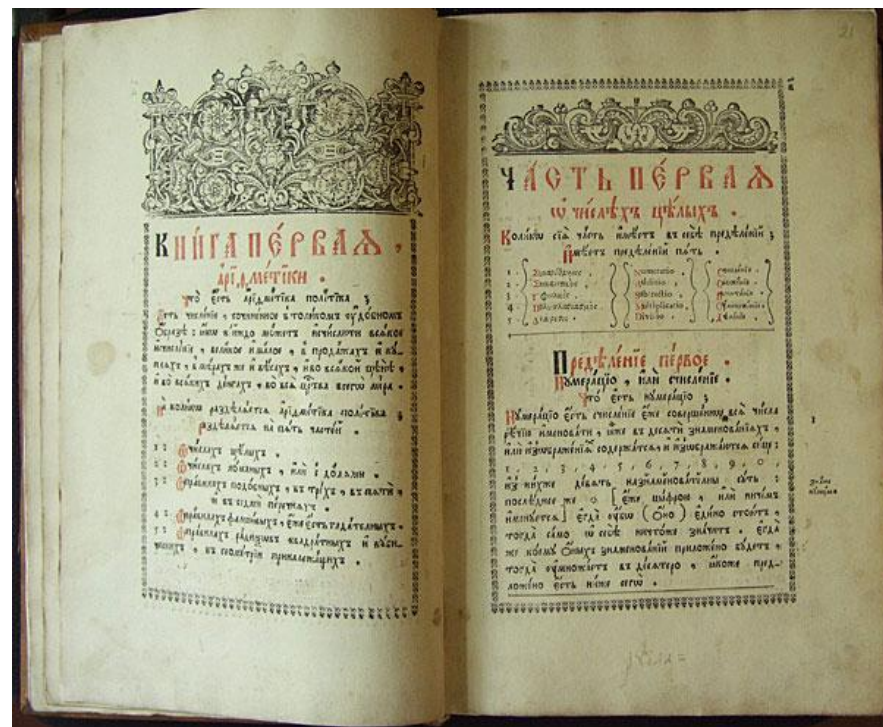 КНИ́ГА ПЕ́РВАѦ .
а҆рїѳме́тїки .
Что̀ є҆́сть а҆рїѳме́тїка полїтїка ;
Е҆́сть числе́нїе , сочине́нное в толи́комъ ᲂу҆до́бномъ
ѻ҆́бразѣ : ꙗ҆́кѡ ки́иждо мо́жетъ и҆счи́слити всѧ́кое
и҆счисле́нїе , вели́кое и҆ ма́лое , в прода́жахъ и҆ ку́-
плѧхъ , в мѣ́рахъ же и҆ вѣ́сахъ , и҆ во всѧ́кой цѣнѣ̀ ,
и҆ во всѧ́кихъ де́нгахъ , во всѧ̑ ца́рства всегѡ̀ мі́ра .
На коли́кѡ раздѣлѧ́етсѧ а҆рїѳме́тїка полїтїка ;
Раздѣлѧ́етсѧ на пѧ́ть часте́й .
1 : Ѡ҆ чи́слахъ цѣ́лыхъ .
2 : Ѡ҆ чи́слахъ ло́маныхъ , и҆лѝ с до́лѧми .
3 : Ѡ҆ пра́вилахъ подо́бныхъ , въ тре́хъ , въ пѧтѝ ,
и҆ въ седмѝ пе́речнѧхъ .
4 : Ѡ҆ пра́вилахъ фалши́выхъ , є҆́же є҆́сть гада́телныхъ .
5 : Ѡ҆ пра́вилахъ ра́дїксѡвъ квадра́тныхъ и҆ куби́-
ческихъ , къ геоме́трїи приналежа́щихъ .
21
ЧА́СТЬ ПЕ́РВАѦ
ѡ҆ чи́слѣхъ цѣ́лыхъ .
Коли́кѡ сїѧ̀ ча́сть и҆мѣ́етъ въ себѣ̀ предѣле́нїй ;
И҆мѣ́етъ предѣле́нїй пѧ́ть .
1 . Нумера́цїо . Счисле́нїе .
2 . Адди́цїо . Сложе́нїе .
3 . Субтра́кцїо . Вычита́нїе .
4 . Мултиплика́цїо . Оу҆множе́нїе .
5 . Диви́зїо . Дѣле́нїе .
Предѣле́нїе пе́рвое .
Нумера́цїо , и҆лѝ счисле́нїе .
Что̀ є҆́сть нумера́цїо ;
Нумера́цїо є҆́сть счисле́нїе є҆́же соверше́ннѡ всѧ̑ чи́сла
рѣ́чїю и҆менова́ти , ꙗ҆̀же въ десѧтѝ знаменова́нїѧхъ ,
и҆лѝ и҆з̾ѡбраже́нїихъ содержа́тсѧ , и҆ и҆з̾ѡбража́ютсѧ си́це :
1 , 2 , 3 , 4 , 5 , 6 , 7 , 8 , 9 , 0 ,
и҆з ни́хже де́вѧть назнамена́телны сꙋ́ть :
послѣ́днее же 0 [ є҆́же цы́фрою , и҆лѝ ничи́мъ
и҆менꙋ́етсѧ ] є҆гда̀ ᲂу҆́бѡ ( ѻ҆но̀ ) є҆ди́но стои́тъ ,
тогда̀ само̀ ѡ҆ себѣ̀ ничто́же зна́читъ . є҆гда́
же ко́емꙋ ѻ҆́ныхъ знаменова́нїй приложе́но бꙋ́детъ ,
тогда̀ ᲂу҆множа́етъ въ де́сѧтеро , ꙗ҆́коже пред-
ложе́но є҆́сть ни́же сегѡ̀ .